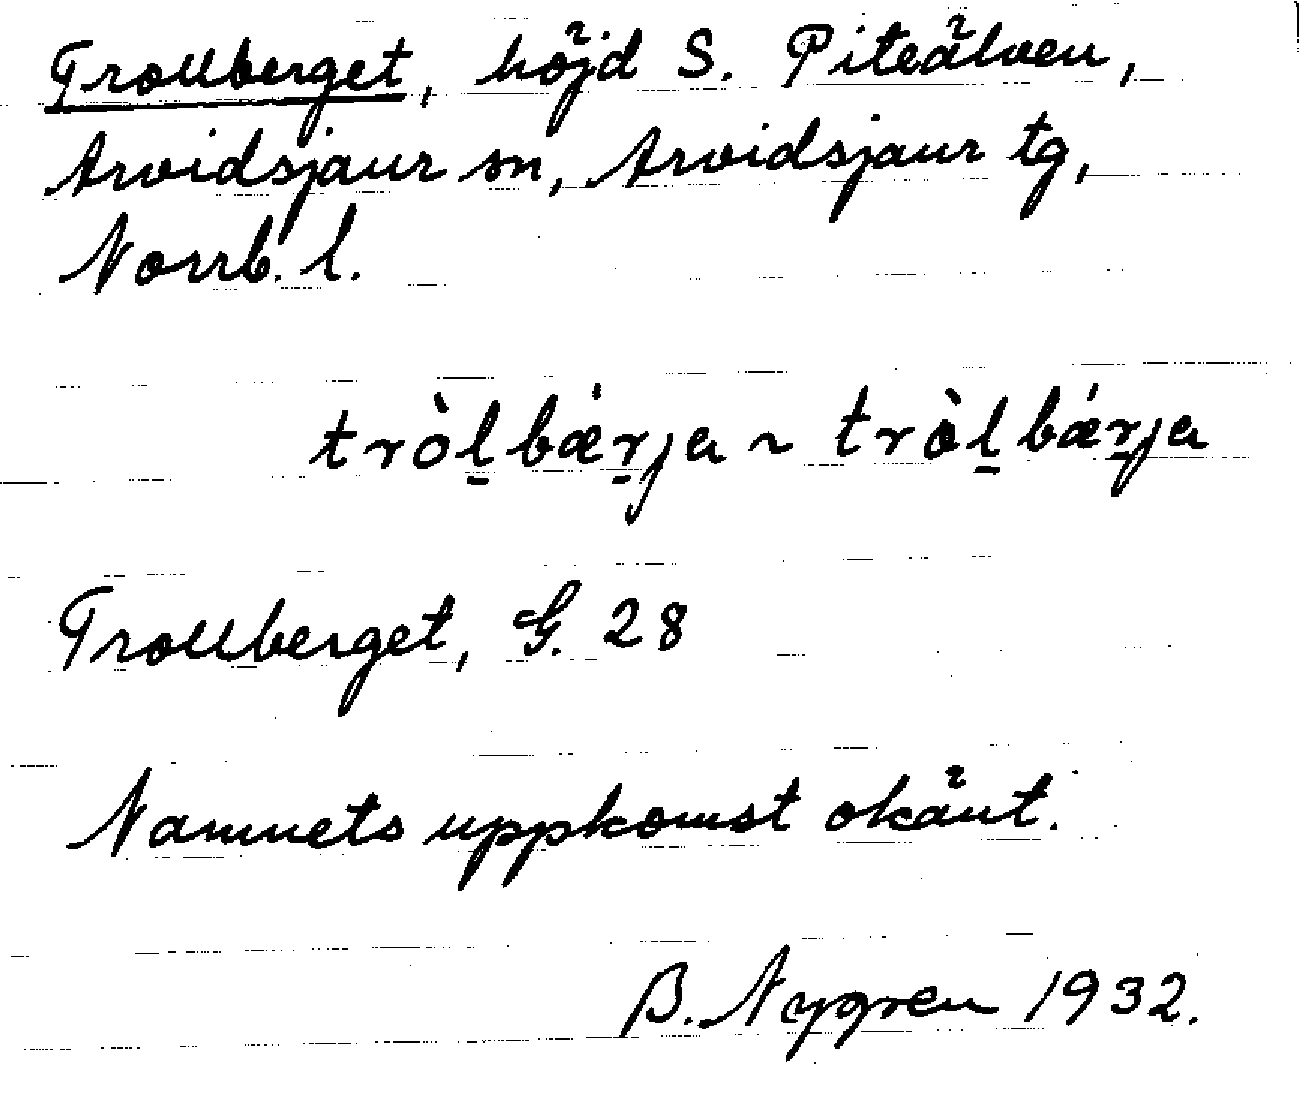 Trollberget, höjd S. Piteälven,
Arvidsjaur sn, Arvidsjaur tg,
Norrb. l.
tròl̠bǽr̠ja ~ tròl̠bǽr̠ja
Trollberget, G. 28
Namnets uppkomst okänt.
B. Nygren 1932.